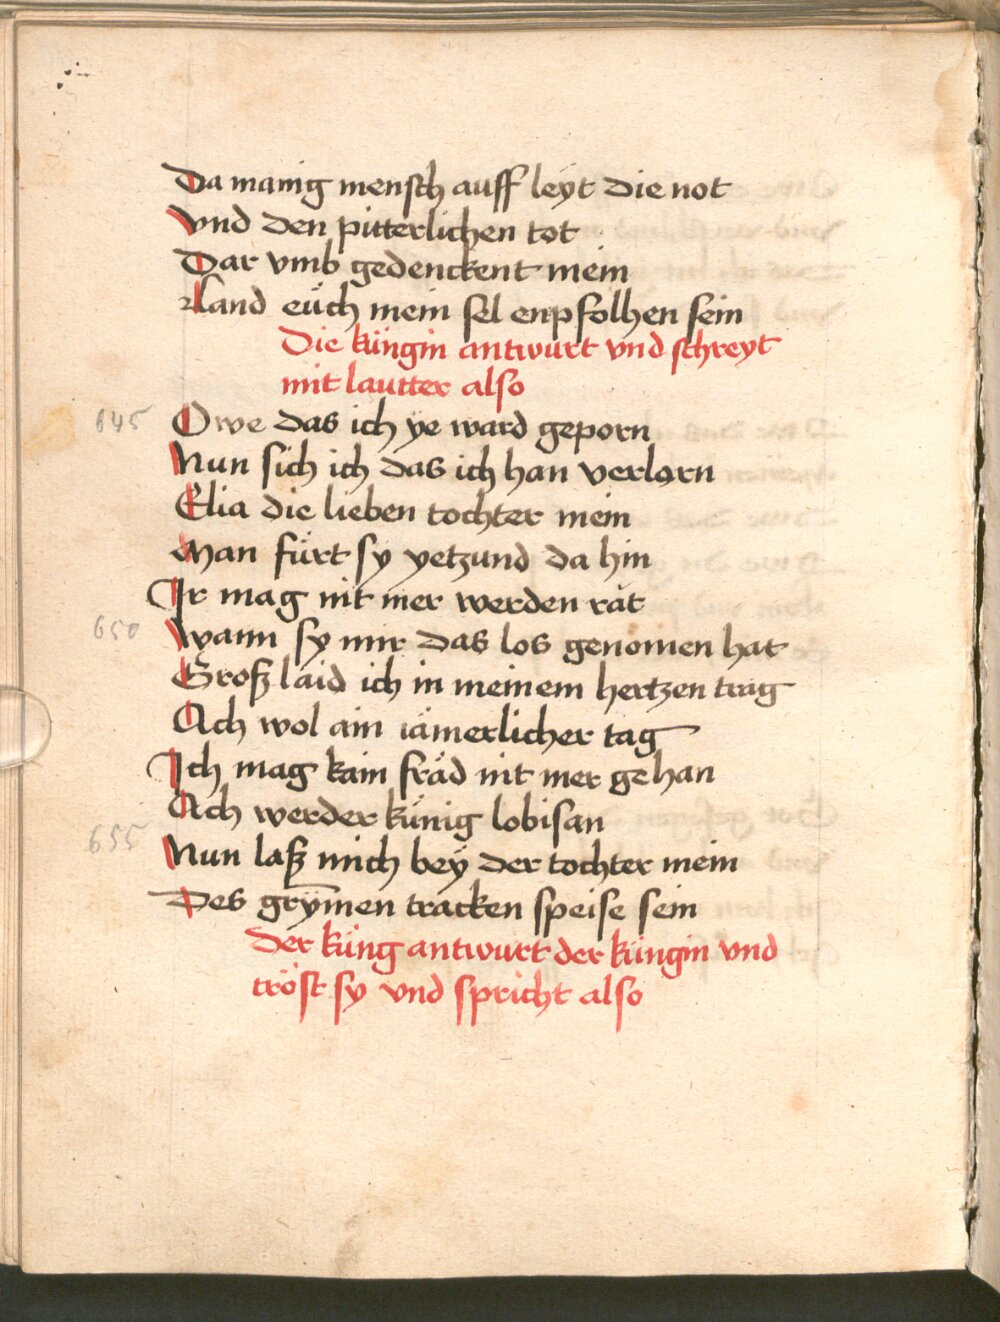 Da manig mensch auff leyt die not
Vnd den pitterlichen tot
Dar vmb gedenckent mein
Land eüch mein sel enpfolhen sein
Die küngin antwurt vnd schreyt
mit lautter also
645 Owe das ich ye ward geporn
Nun sich ich das ich han verlorn
Elia die lieben tochter mein
Man fürt sy yetzund da hin
Ir mag nit mer werden rät
650 Wann sy mir das los genomen hat
Groß laid ich in meinem hertzen trag
Ach wol ain iämerlicher tag
Ich mag kain fräd nit mer gehan
Ach werder künig lobisan
655 Nun laß mich bey der tochter mein
Des grym̄en tracken speise sein
Der küng antwurt der küngin vnd
tröst sy vnd spricht also